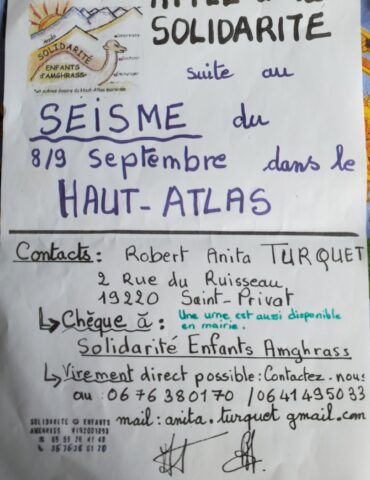 SOLIDARITÉ
suite au
SEISME du
8/9 Septembre dans le
HAUT-ATLAS
Contacts : Robert Anita TURQUET
2 Rue du Ruisseau
19220 Saint-Privat
↳ Chèque à : Une urne est aussi disponible
en mairie.
Solidarité Enfants Amghrass
↳ Virement direct possible : Contactez-nous
au : 06 76 38 01 70 / 06 41 49 50 33
mail : anita.turquet gmail.com
SOLIDARITE ENFANTS
AMGHRASS
SOLIDARITÉ
ENFANTS
D'AMGHRASS